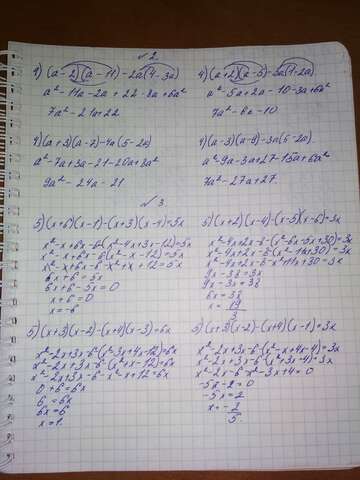 √2.
1) (a-2)(a-11)-2a(4-3a)
a²-11a-2a+22-8a+6a²
7a²-21a+22
4) (a+2)(a-5)-3a(1-2a)
a²-5a+2a-10-3a+6a²
7a²-6a-10
4) (a+3)(a-7)-4a(5-2a)
a²-7a+3a-21-20a+8a²
9a²-24a-21
4) (a-3)(a-9)-3a(5-2a)
a²-9a-3a+27-15a+6a²
7a²-27a+27.
√3.
5) (x+6)(x-1)-(x+3)(x-4)=5x
x²-x+6x-6-(x²-4x+3x-12)=5x
x²-x+6x-6(x²-x-12)=5x
x²-x+6x-6-x²+x+12=5x
6x+6=5x
6x+6-5x=0
x+6=0
x=-6
5) (x+2)(x-4)-(x-5)(x-6)=3x
9x-38=3x
9x-3x=38
6x=38
x=19
3
5) (x+3)(x-2)-(x+4)(x-3)=6x
x²-2x+3x-6-(x²-3x+4x-12)=6x
x²-2x+3x-6-(x²+x-12)=6x
x²-2x+3x-6-x²-x+12=6x
0+6=6x
6=6x
6x=6
x=1.
5) (x+3)(x-2)-(x+4)(x-1)=3x
x²-2x+3x-6-(x²-x+4x-4)=3x
x²-2x+3x-6-(x²+3x-4)=3x
-5x-2=0
-5x=2
x=-2
5.